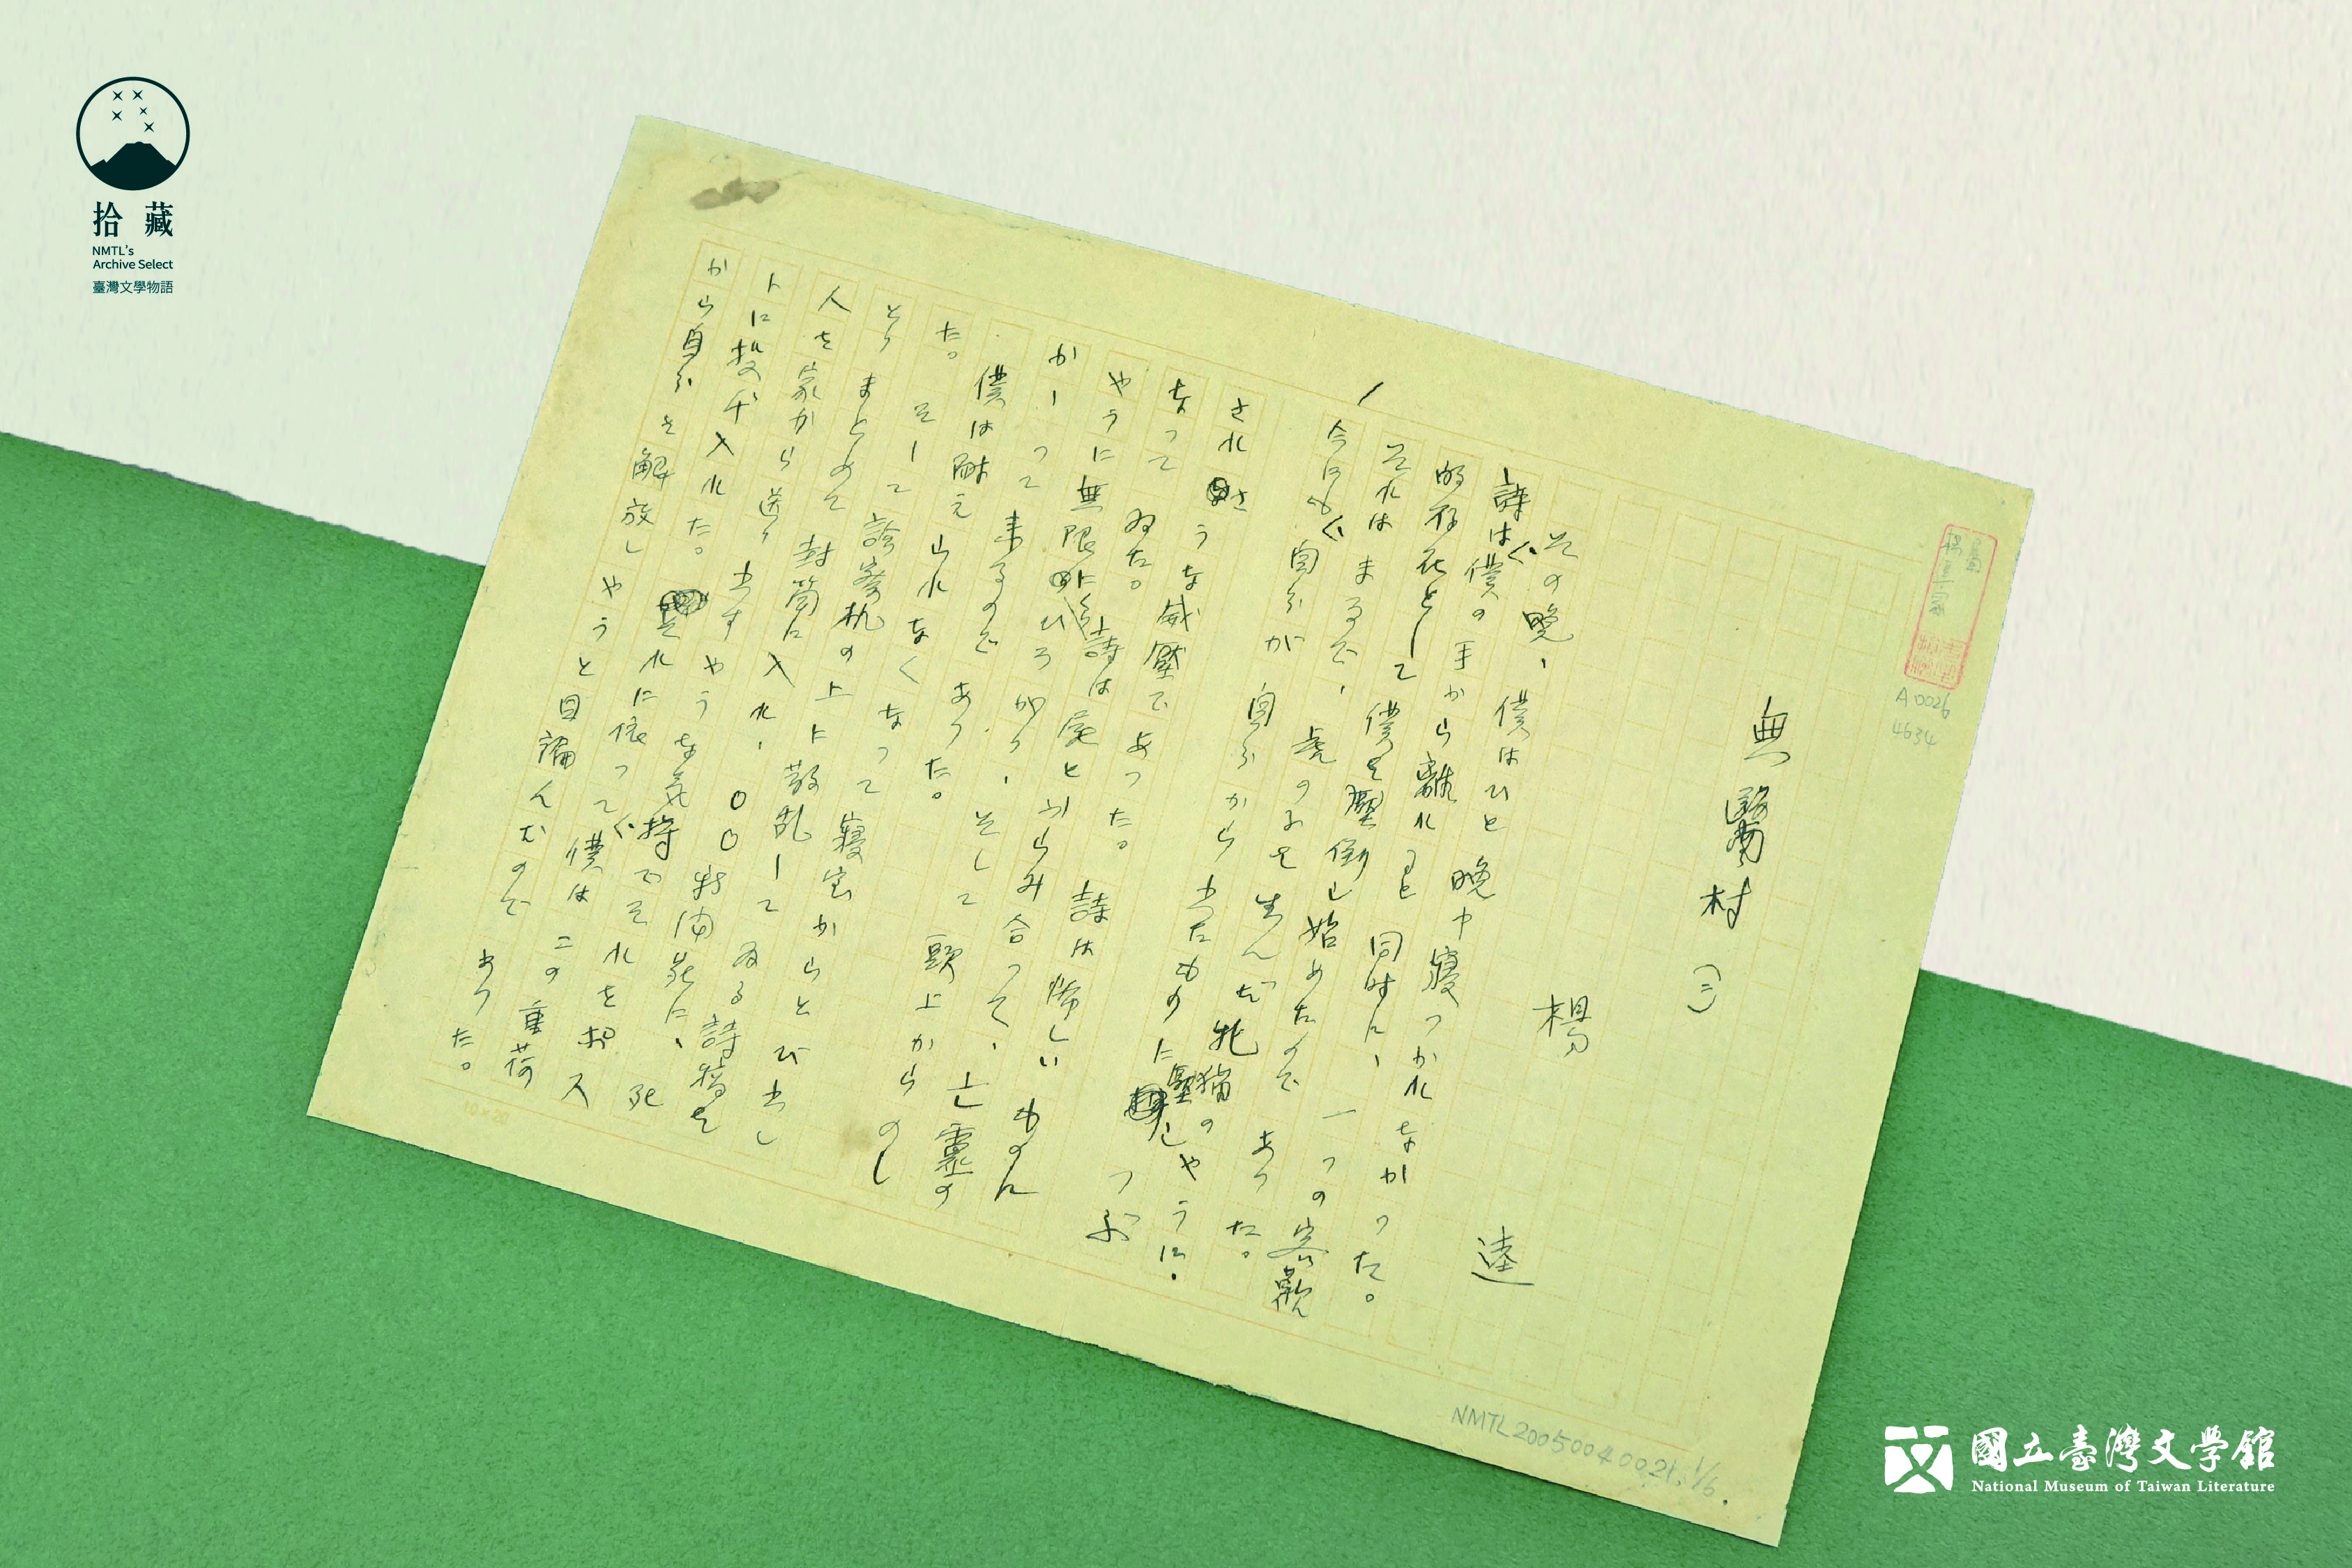 拾藏
NMTL's
Archive Select
臺灣文學物語
A0026
4634
無醫村 (三)
楊 逵
その晩、僕はひと晩中寢つかれなかった。
詩は僕の手から離れると同時に、一つの客觀
的存在として僕を壓倒し始めたのであった。
それはまるで、虎の子を生んだ牝猫のやうに、
今にも自分が自分から出たものに壓しつぶ
されさうな威壓であった。詩は怖しいものに
なってゐた。詩は屍とからみ合って、亡靈の
やうに無限にひろがり、そして頭上からのし
かゝって来るのであった。
僕は耐え切れなくなって寢室からとび出し
た。そして診察机の上に散乱してゐる詩稿を
とりまとめて封筒に入れ、〇〇新聞宛に、死
人を家から送り出すやうな気持でそれをポス
トに投げ入れた。それに依って僕はこの重荷
から自分を解放しやうと目論んだのであった。
10×20
NMTL20050040021, 1/6.
國立臺灣文學館
National Museum of Taiwan Literature